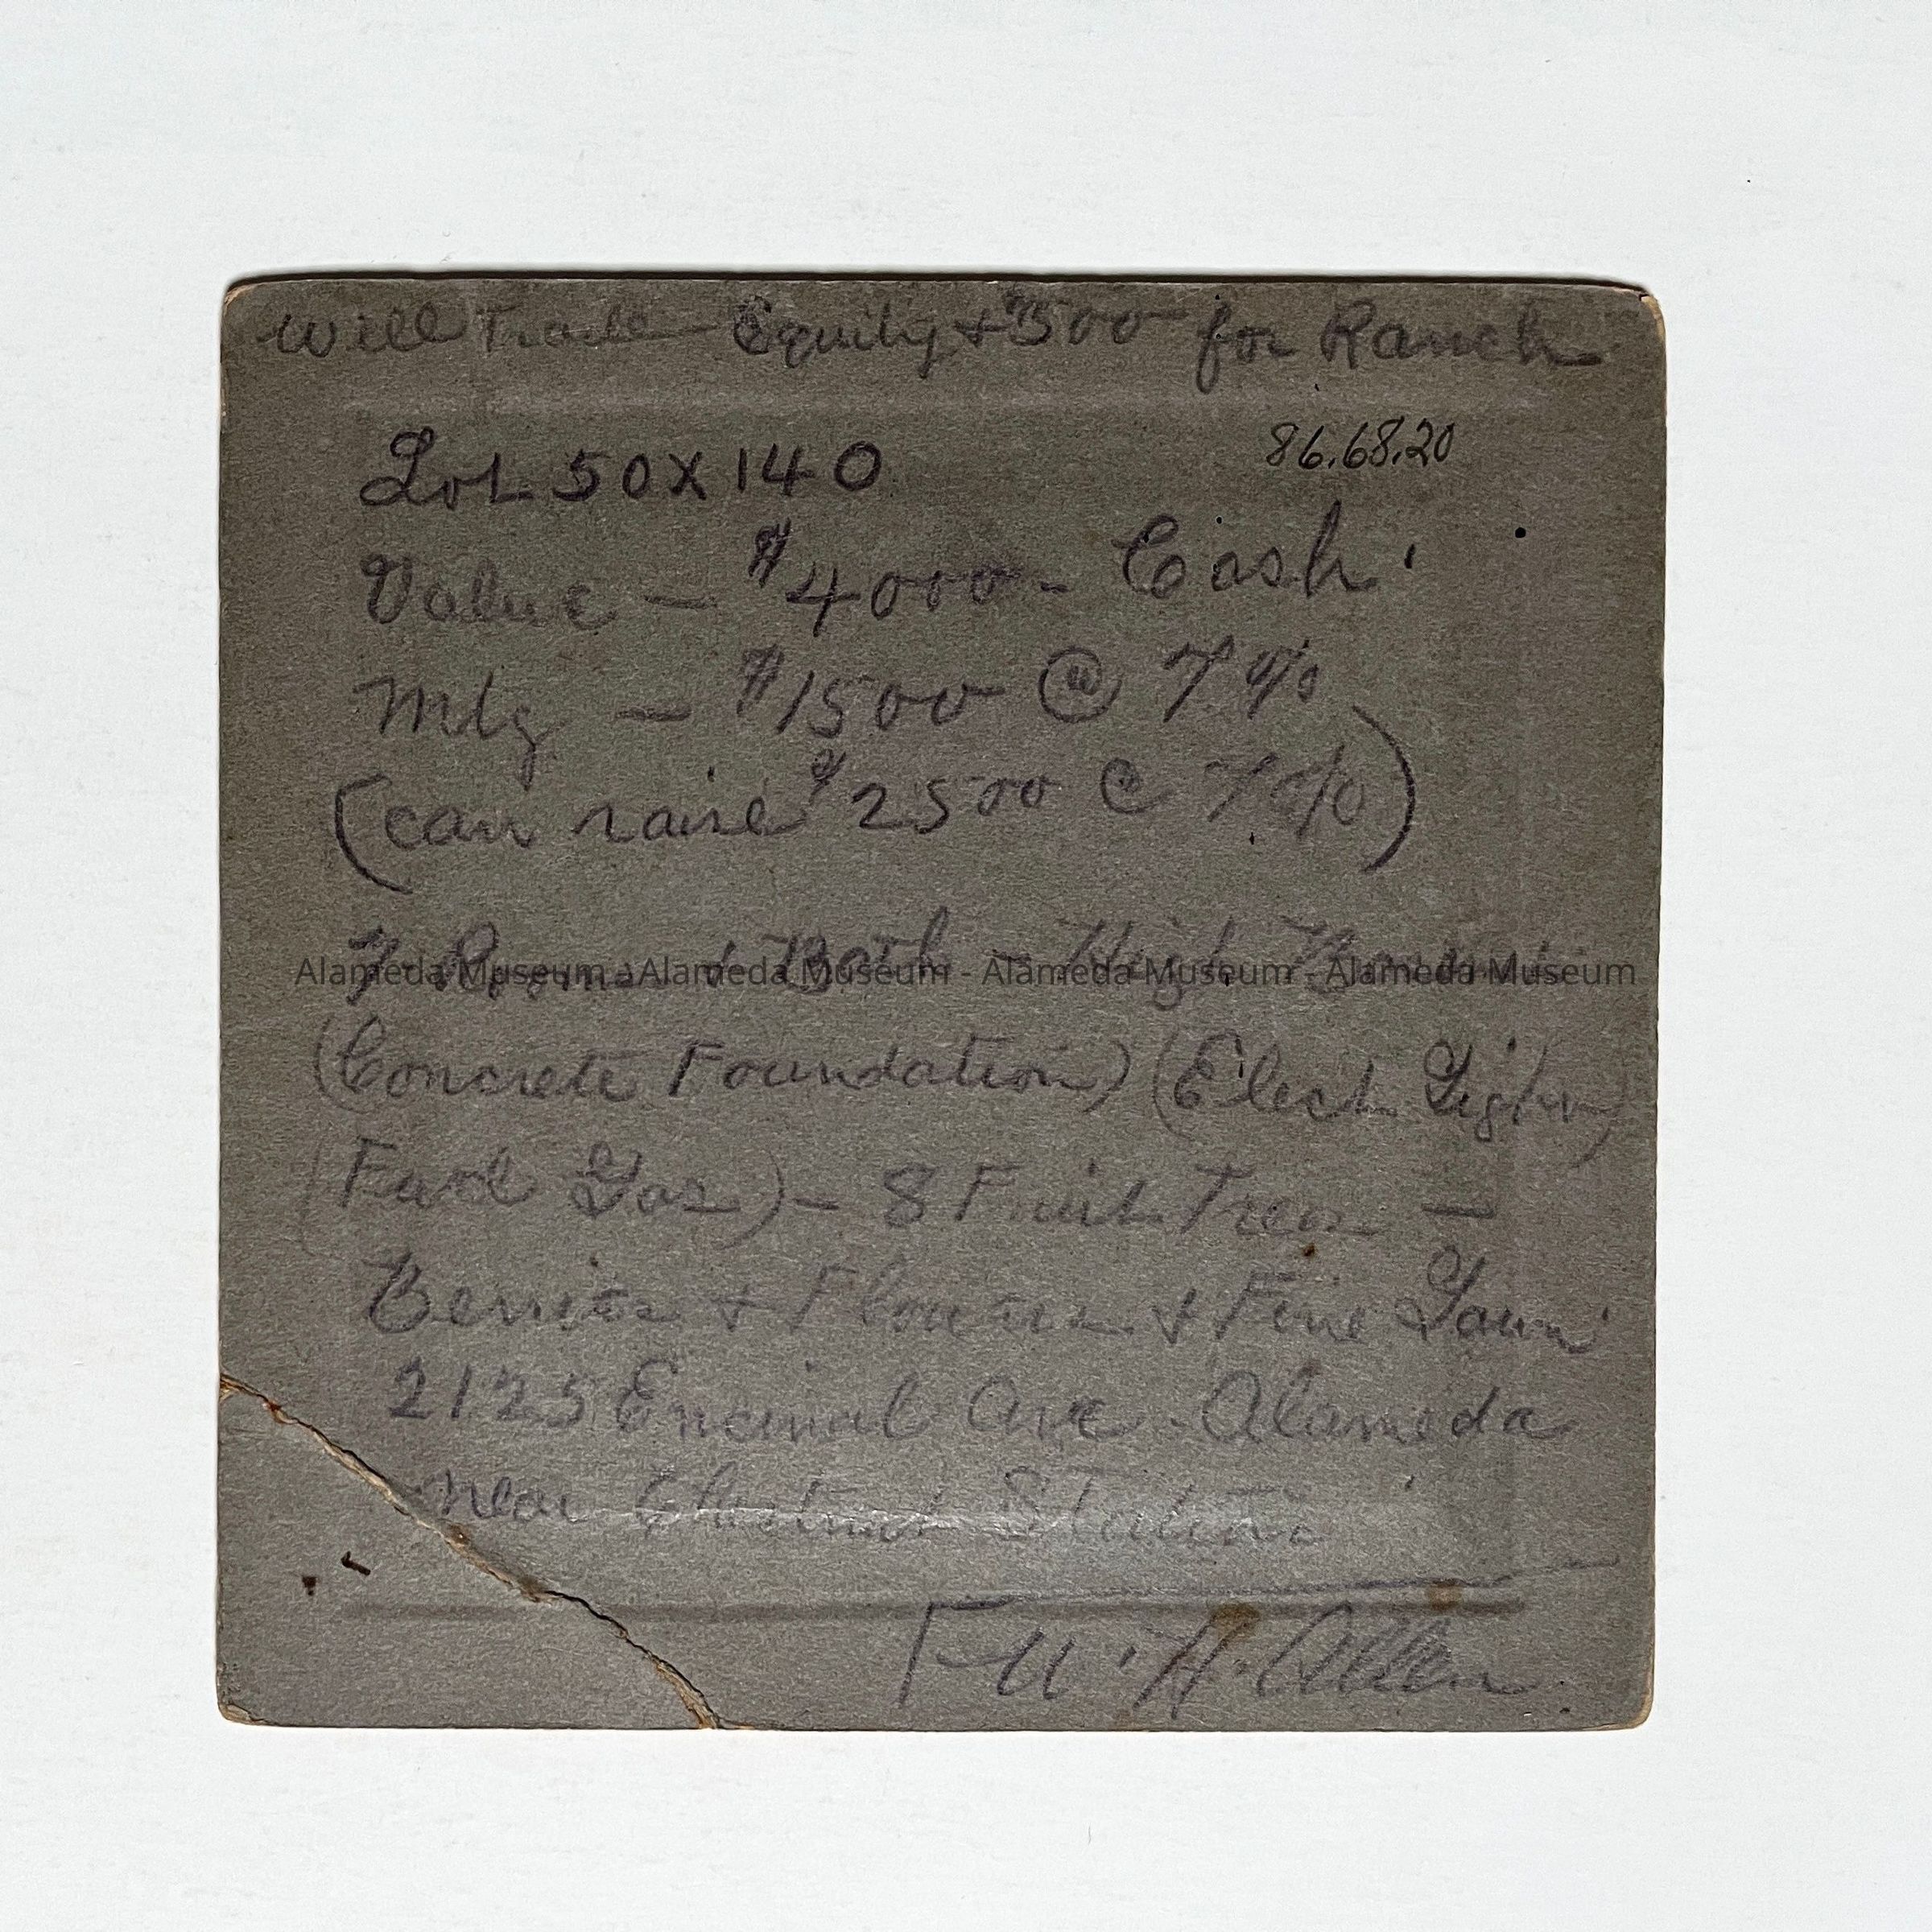 Will Trade - Equity + $500 for Ranch
86.68.20
Lot 50 x 140
Value - $4000 - Cash.
Mtg - $1500 @ 7%
(can raise $2500 @ 7%)
7 Rooms + Bath - High
Alameda Museum - Alameda Museum - Alameda Museum - Alameda Museum
(Concrete Foundation) (Elect Lights)
(Fuel Gas) - 8 Fruit Trees -
Berries + Flowers + Fine Lawn
2125 Encinal Ave - Alameda
near Chestnut Station
H. Allen